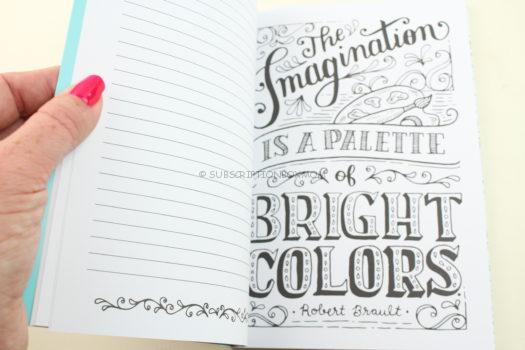 The
Imagination
IS A PALETTE
of
BRIGHT
COLORS
- Robert Brault -
© SUBSCRIPTIONBOXMOM